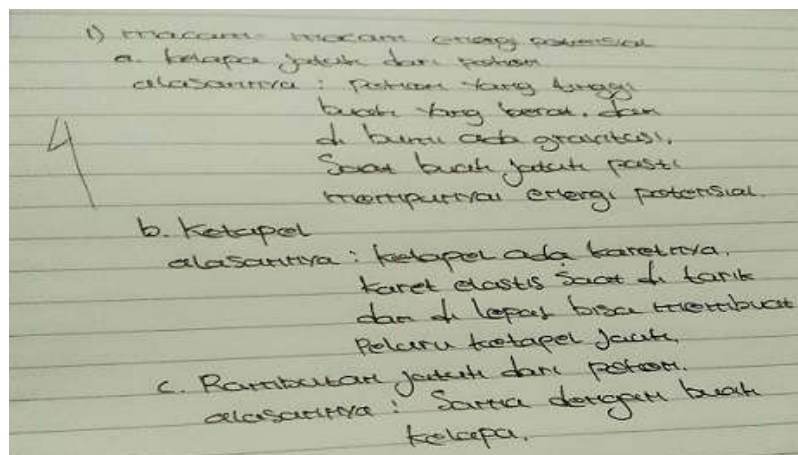 1) macam-macam energi potensial
a. kelapa jatuh dari pohon
alasannya : pohon yang tinggi
buah yang berat. dan
di bumi ada gravitasi.
Saat buah jatuh pasti
mempunyai energi potensial.
4
b. Ketapel
alasannya : ketapel ada karetnya.
karet elastis saat di tarik
dan di lepas bisa membuat
Peluru ketapel jauh.
c. Rambutan jatuh dari pohon.
alasannya : Sama dengan buah
kelapa.